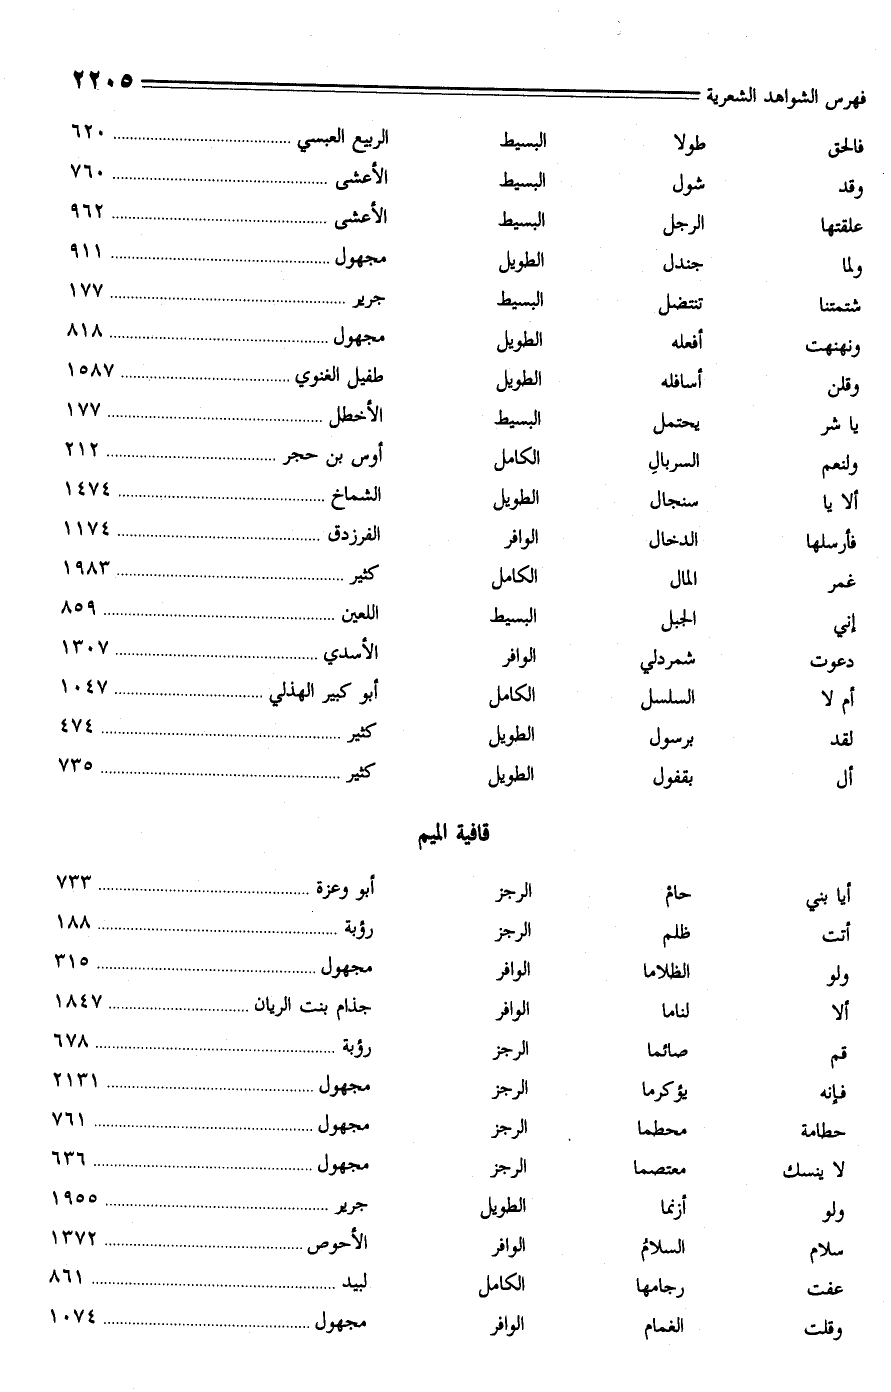 فهرس الشواهد الشعرية ٢٢٠٥
فالحق طولا البسيط الربيع العبسي ٦٢٠
وقد شول البسيط الأعشى ٧٦٠
علقتها الرجل البسيط الأعشى ٩٦٢
ولما جندل الطويل مجهول ٩١١
شتمتنا تنتضل البسيط جرير ١٧٧
ونهنهت أفعله الطويل مجهول ٨١٨
وقلن أسافله الطويل طفيل الغنوي ١٥٨٧
يا شر يحتمل البسيط الأخطل ١٧٧
ولنعم السربالِ الكامل أوس بن حجر ٢١٢
ألا يا سنجال الطويل الشماخ ١٤٧٤
فأرسلها الدخال الوافر الفرزدق ١١٧٤
غمر المال الكامل كثير ١٩٨٣
إني الجبل البسيط اللعين ٨٥٩
دعوت شمردلي الوافر الأسدي ١٣٠٧
أم لا السلسل الكامل أبو كبير الهذلي ١٠٤٧
لقد برسول الطويل كثير ٤٧٤
أل بقفول الطويل كثير ٧٣٥
قافية الميم
أيا بني حامْ الرجز أبو وعزة ٧٣٣
أتت ظلم الرجز رؤبة ١٨٨
ولو الظلاما الوافر مجهول ٣١٥
ألا لناما الوافر جذام بنت الريان ١٨٤٧
قم صائما الرجز رؤبة ٦٧٨
فإنه يؤكرما الرجز مجهول ٢١٣١
حطامة محطما الرجز مجهول ٧٦١
لا ينسك معتصما الرجز مجهول ٦٣٦
ولو أزنما الطويل جرير ١٩٥٥
سلام السلامُ الوافر الأحوص ١٣٧٢
عفت رجامها الكامل لبيد ٨٦١
وقلت الغمام الوافر مجهول ١٠٧٤